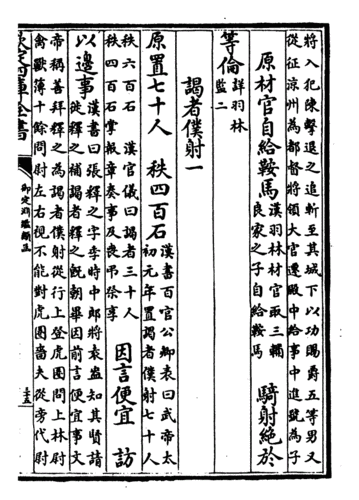 將入犯陳擊退之追斬至其城下以功賜爵五等男又
從征涼州為都督將領大官遷殿中給事中進號為子
原材官自給鞍馬 漢羽林材官取三輔 良家之子自給鞍馬 騎射絶於
等倫 詳羽林 監二
謁者僕射一
原置七十人 秩四百石 漢書百官公卿表曰武帝太 初元年置謁者僕射七十人
秩六百石 漢官儀曰謁者三十人 秩四百石掌報章奏事及喪弔祭享 因言便宜 訪
以邊事 漢書曰張釋之字季時中郎將袁盎知其賢請 徙釋之補謁者釋之既朝畢因前言便宜事文
帝稱善拜釋之為謁者僕射從行上登虎圈問上林尉
禽獸簿十餘問尉左右視不能對虎圈嗇夫從旁代尉
欽定四庫全書
御定淵鑑類函